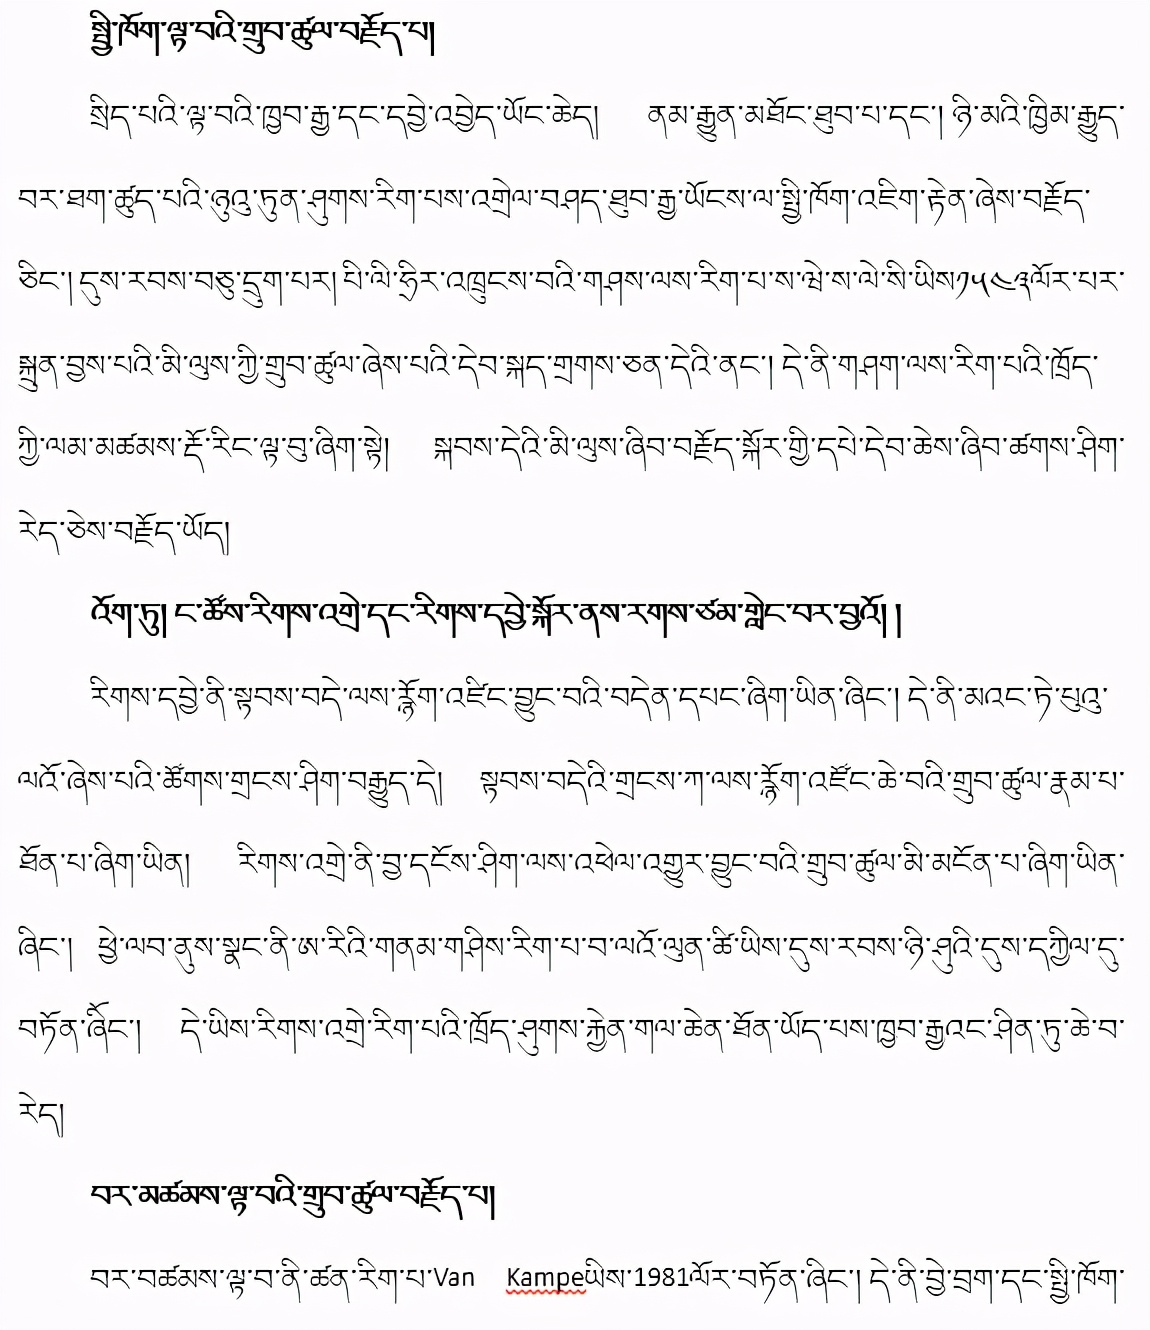 སྤྱི་ཁོག་ལྟ་བའི་གྲུབ་ཚུལ་བརྗོད་པ།
སྲིད་པའི་ལྟ་བའི་ཁྱབ་རྒྱ་དང་དབྱེ་འབྱེད་ཡོང་ཆེད། ནམ་རྒྱུན་མཐོང་ཐུབ་པ་དང་། ཉི་མའི་ཁྱིམ་རྒྱུད་
བར་ཐག་ཚུད་པའི་ཉུའུ་ཏུན་ཤུགས་རིག་པས་འགྲེལ་བཤད་ཐུབ་རྒྱ་ཡོངས་ལ་སྤྱི་ཁོག་འཇིག་རྟེན་ཞེས་བརྗོད་
ཅིང་། དུས་རབས་བཅུ་དྲུག་པར། པི་ལི་ཧྲིར་འཁྲུངས་བའི་གཤས་ལས་རིག་པ་ས་ཝེ་ས་ལེ་སི་ཡིས༡༥༤༣ལོར་པར་
སྐྲུན་བྱས་པའི་མི་ལུས་ཀྱི་གྲུབ་ཚུལ་ཞེས་པའི་དེབ་སྐད་གྲགས་ཅན་དེའི་ནང་། དེ་ནི་གཤག་ལས་རིག་པའི་ཁྲོད་
ཀྱི་ལམ་མཚམས་རྡོ་རིང་ལྟ་བུ་ཞིག་སྟེ། སྐབས་དེའི་མི་ལུས་ཞིབ་བརྗོད་སྐོར་གྱི་དཔེ་དེབ་ཆེས་ཞིབ་ཚགས་ཤིག་
རེད་ཅེས་བརྗོད་ཡོད།
འོག་ཏུ། ང་ཚོས་རིགས་འགྲེ་དང་རིགས་དབྱེ་སྐོར་ནས་རགས་ཙམ་གླེང་བར་བྱའོ། །
རིགས་དབྱེ་ནི་སྟབས་བདེ་ལས་རྙོག་འཛིང་བྱུང་བའི་བདེན་དཔང་ཞིག་ཡིན་ཞིང་། དེ་ནི་མའང་ཏེ་པུའུ་
ལའོ་ཞེས་པའི་ཚོགས་གྲངས་ཤིག་བརྒྱུད་དེ། སྟབས་བདེའི་གྲངས་ཀ་ལས་རྙོག་འཛོང་ཆེ་བའི་གྲུབ་ཚུལ་རྣམ་པ་
ཐོན་པ་ཞིག་ཡིན། རིགས་འགྲེ་ནི་བྱ་དངོས་ཤིག་ལས་འཕེལ་འགྱུར་བྱུང་བའི་གྲུབ་ཚུལ་མི་མངོན་པ་ཞིག་ཡིན་
ཞིང་། ཕྱེ་ལབ་ནུས་སྣང་ནི་ཨ་རིའི་གནམ་གཤིས་རིག་པ་བ་ལའོ་ལུན་ཚི་ཡིས་དུས་རབས་ཉི་ཤུའི་དུས་དཀྱིལ་དུ་
བཏོན་ཞིོང་། དེ་ཡིས་རིགས་འགྲེ་རིག་པའི་ཁྲོད་ཤུགས་རྐྱེན་གལ་ཆེན་ཐོན་ཡོད་པས་ཁྱབ་རྒྱའང་ཤིན་ཏུ་ཆེ་བ་
རེད།
བར་མཚམས་ལྟ་བའི་གྲུབ་ཚུལ་བརྗོད་པ།
བར་བཚམས་ལྟ་བ་ནི་ཚན་རིག་པ་Van Kampeཡིས་1981ལོར་བཏོན་ཞིང་། དེ་ནི་བྱེ་བྲག་དང་སྤྱི་ཁོག་